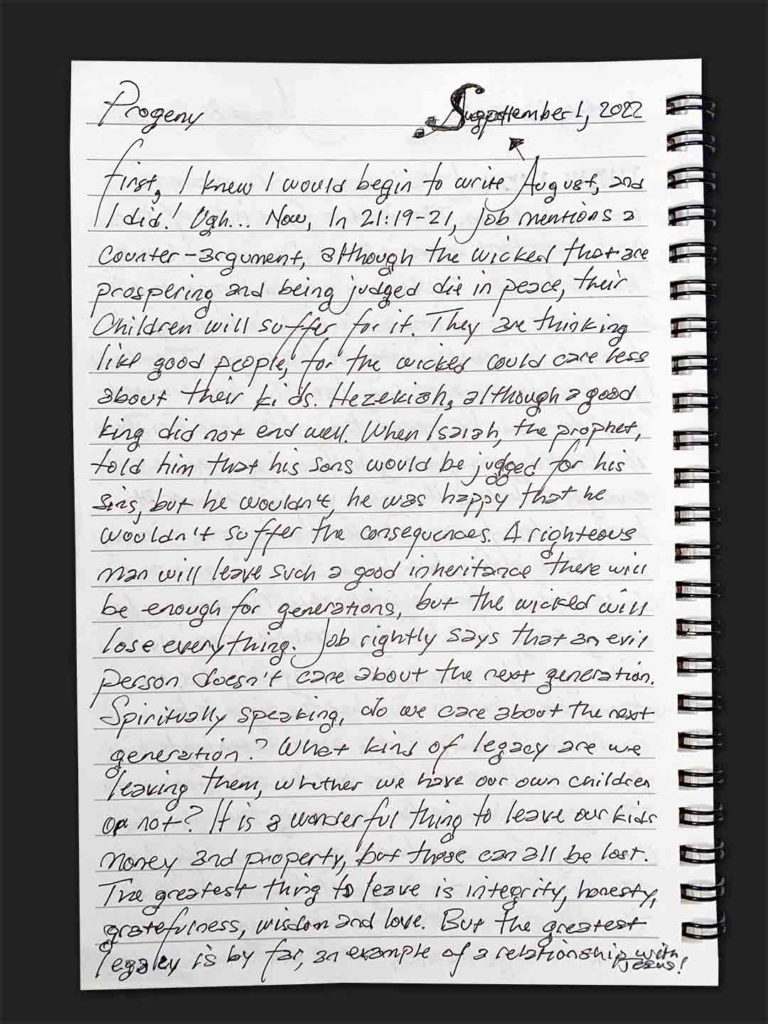 Progeny September 1, 2022
First, I knew I would begin to write August, and
I did! Ugh... Now, In 21:19-21, Job mentions a
counter-argument, although the wicked that are
prospering and being judged die in peace, their
Children will suffer for it. They are thinking
like good people, for the wicked could care less
about their kids. Hezekiah, although a good
king did not end well. When Isaiah, the prophet,
told him that his sons would be judged for his
sins, but he wouldn't, he was happy that he
wouldn't suffer the consequences. A righteous
man will leave such a good inheritance there will
be enough for generations, but the wicked will
lose everything. Job rightly says that an evil
person doesn't care about the next generation.
Spiritually speaking, do we care about the next
generation? What kind of legacy are we
leaving them, whether we have our own children
or not? It is a wonderful thing to leave our kids
money and property, but those can all be lost.
The greatest thing to leave is integrity, honesty,
gratefulness, wisdom and love. But the greatest
legacy is by far, an example of a relationship with
Jesus!